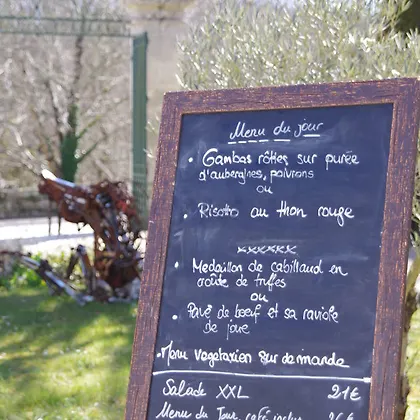 Menu du jour
• Gambas rôties sur purée
d'aubergines, poivrons
ou
• Risotto au thon rouge
xxxxxx
• Medaillon de cabillaud en
croûte de truffes
ou
• Pavé de boeuf et sa raviole
de joue
• Menu vegetarien sur demande
Salade XXL 21€
Menu du Jour, café inclus 26€